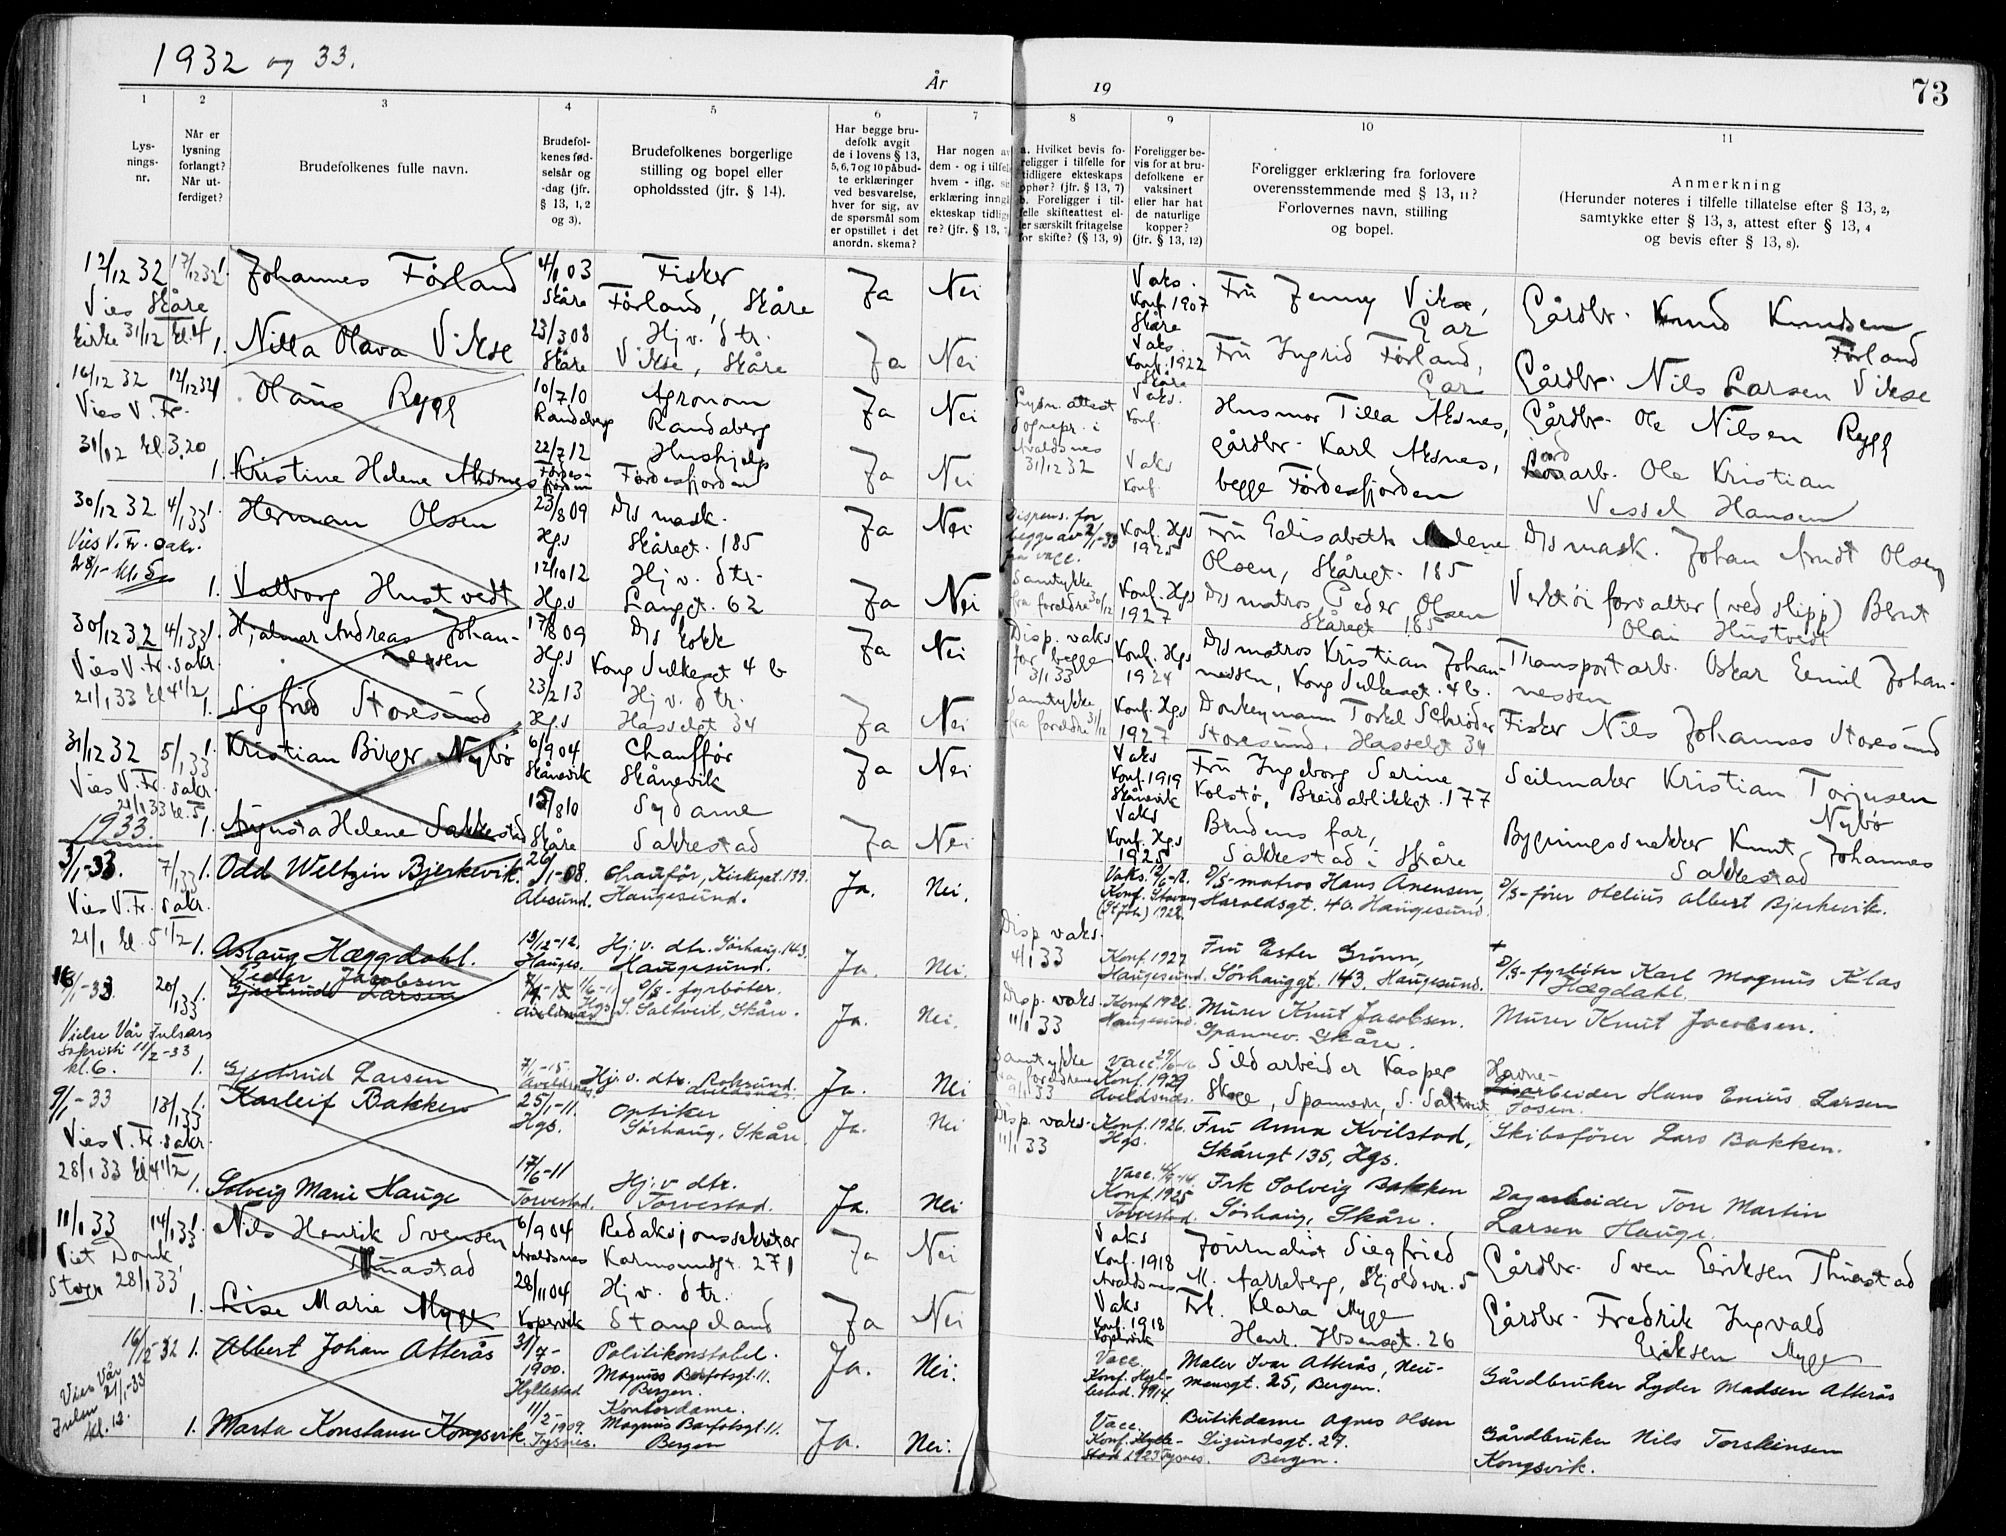 1932 og 33.
År
19
73
1
2
3
4
5
6
7
8
9
10
11
Lys-
nings-
nr.
Når er
lysning
forlangt?
Når ut-
ferdiget?
Brudefolkenes fulle navn.
Brudefol-
kenes fød-
selsår og
-dag (jfr.
§ 13, 1, 2
og 3).
Brudefolkenes borgerlige
stilling og bopel eller
opholdssted (jfr. § 14).
Har begge bru-
defolk avgit
de i lovens § 13,
5, 6, 7 og 10 påbud-
te erklæringer
ved besvarelse,
hver for sig, av
de spørsmål som
er opstillet i det
anordn. skema?
Har nogen av
dem - og i tilfelle
hvem - iflg.
erklæring inngå
ekteskap tidlige-
re? (jfr. § 13,
a. Hvilket bevis fo-
religger i tilfelle for
tidligere ekteskaps
ophør? (jfr. § 13, 7)
b. Foreligger i til-
felle skifteattest el-
ler særskilt fritagelse
for skifte? (§ 13, 9)
Foreligger be-
vis for at bru-
defolkene er
vaksinert
eller har hat
de naturlige
kopper?
(jfr. § 13, 12)
Foreligger erklæring fra forlovere
overensstemmende med § 13, 11?
Forlovernes navn, stilling
og bopel.
Anmerkning
(Herunder noteres i tilfelle tillatelse efter § 13, 2,
samtykke efter § 13, 3, attest efter § 13, 4
og bevis efter § 13, 8).
12/12 32 17/12 32 1. Johannes Førland 4/1 03 Fisker Ja Nei Vaks. Fru Jenny Vikse, Gårdbr. Knud Knudsen
Vies Skåre Skåre Førland, Skåre Konf. 1907 Gar Førland
Kirke 31/12 kl. 4 Skåre
1. Nilla Olava Vikse 23/3 08 Hj. v. dtr. Ja Nei Vaks Fru Ingrid Førland, Gårdbr. Nils Larsen Vikse
Skåre Vikse, Skåre Konf. 1922 Gar
Skåre
16/12 32 17/12 32 1 Olaus Rygg 10/7 10 Agronom Ja Nei Lysn. attest Vaks. Husmor Tilla Aksnes, Gårdbr. Ole Nilsen Rygg
Vies V. Fr. Randaberg Randaberg Sognepr. i Konf.
31/12 kl. 3.20 Avaldsnes
1. Kristine Helene Aksnes 22/7 12 Hushjelp Ja Nei 31/12 32 Vaks gårdbr. Karl Aksnes, Jordarb. Ole Kristian
Førdesfjorden Førdesfjorden Konf begge Førdesfjorden Vessel Hansen
30/12 32 4/1 33 1. Herman Olsen 23/8 09 D/s mask. Ja Nei Dispens. for Konf. Hgs Fru Elisabeth Malene D/s mask. Johan Arndt Olsen
Vies V. Fr. sakr. Hgs Skåregt. 185 begge av 2/1-33 1925 Olsen, Skåregt. 185
28/1 - kl. 5 på vacc.
1. Valborg Hustvedt 12/10 12 Hj. v. dtr. Ja Nei Samtykke Konf. Hgs D/s matros Peder Olsen Verktøiforvalter (ved slipp) Bernt
Hgs Langgt. 62 fra foreldre 30/12 1927 Skåregt 185 Olai Hustvedt
30/12 32 4/1 33 1. Hjalmar Andreas Johan- 17/8 09 D/s kokk Ja Nei Disp. vaks Konf. Hgs D/s matros Kristian Johan- Transportarb. Oskar Emil Johan-
Vies V. Fr. sakr. nessen Hgs Kong Sulkesgt 4 b for begge 1924 nessen, Kong Sulkesgt. 4 b. nessen
21/1 33 kl 4 1/2 3/1 33
1. Sigfrid Storesund 23/2 13 Hj. v. dtr. Ja Nei Samtykke Konf. Hgs Donkeymann Torkel Schrøder Fisker Nils Johannes Storesund
Hgs Hasselgt 34 fra foreldre 31/12 1927 Storesund, Hasselgt 34
31/12 32 5/1 33 1. Kristian Birger Nybø 6/9 04 Chauffør Ja Nei Vaks Fru Ingeborg Serine Seilmaker Kristian Torjusen
Vies V. Fr. sakr. Skånevik Skånevik Konf. 1919 Kolstø, Breidablikkgt. 177 Nybø
21/1 33 kl. 5 Skånevik
1933. 1. Agusta Helene Sakkestad 15/8 10 Sydame Ja Nei Vaks Brudens far, Bygningssnekker Knut Johannes
Skåre Sakkestad Konf. Hgs Sakkestad i Skåre Sakkestad
1925
3/1-33. 7/1 33 1. Odd Weltzin Bjerkevik. 26/1-08. Chaufför, Kirkegt. 139. Ja. Nei. Vaks. 12/6-18. D/S-matros Hans Anensen, D/S-förer Otelius Albert Bjerkevik.
Vies V. Fr. sakr. Ålesund. Haugesund. Konf. Stavang Haraldsgt. 40. Haugesund.
21/1 kl. 5 1/2 (St. Joh.) 1922.
1. Aslaug Hæggdahl. 13/12-12. Hj. v. dtr. Sørhaug. 143. Ja. Nei. Disp vaks. Konf. 1927 Fru Ester Grönn, + D/S-fyrböter Karl Magnus Klas
Hauges. Haugesund. 4/1 33 Haugesund. Sörhauggt. 143, Haugesund. Hægdahl.
16/1-33 20/1 33 1. Peder Jacobsen 16/6-11 D/S-fyrböter. Ja. Nei. Disp. vaks. Konf. 1926. Murer Knut Jacobsen. Murer Knut Jacobsen.
Gjertrude Larsen Hgs. S. Saltveit, Skåre. 11/1 33 Haugesund. Spannev. Skåre.
Vielse Vår Frelsers
Sakristi 11/2-33
kl. 6. 1. Gjertrud Larsen 7/1-15. Hj. v. dtr. Røksund. Ja. Nei Samtykke Vacc. 29/6-16 Sildarbeider Kasper Havne-
Avaldsnes. Avaldsnes. fra foreldrene Konf. 1929 arbeider Hans Enius Larsen
9/1 33 Avaldsnes. Spannav., S. Saltveit Fosen.
9/1-33 13/1 33 1. Karleif Bakken 25/1-11. Optiker Ja. Nei Disp. vaks. Konf. 1926. Fru Anna Kvilstad, Skibsförer Lars Bakken.
Vies V. Fr. sakr. Hgs. Sörhaug, Skåre. 11/1 33 Hgs. Skåregt 135, Hgs.
28/1 33 kl 4 1/2
1. Solveig Marie Hauge 17/6-11 Hj. v dtr. Ja. Nei Vacc. 4/9-14. Frk Solveig Bakken Dagarbeider Tore Martin
Torvestad. Torvestad. Konf. 1925 Sörhaug, Skåre. Larsen Hauge.
Torvestad.
11/1 33 14/1 33 1. Nils Henrik Svensen 6/9 04 Redaksjonssekretær Ja Nei Vaks Journalist Siegfried Gårdbr. Sven Eriksen Thuastad
Viet Domk. Thuastad Avaldsnes Karmsundgt. 271 Konf. 1918 M. Aarreberg, Skjoldav. 5
Stvgr 28/1 33 Avaldsnes
1. Lise Marie Myge 28/11 04 Hj. v. dtr. Ja Nei Vaks Frk. Klara Myge Gårdbr. Fredrik Ingvald
Kopervik Stangeland Konf. 1918 Henr. Ibsensgt. 26 Eriksen Myge
Kopervik
16/12-32 1. Albert Johan Atterås 31/7- Politikonstabel. Ja. Nei. Vacc. Maler Ivar Atterås, Neu- Gårdbruker Lyder Madsen Atterås
Vies Vår 1900. Magnus Barfotsgt. 11. Konf. Hyl- mansgt. 25, Bergen.
Frelser 21/1-33 Hyllestad Bergen. lestad. 1914.
kl. 12. 1. Marta Konstanse Kongsvik 11/2-1909. Kontordame. Ja. Nei. Vacc Butikdame Agnes Olsen Gårdbruker Nils Torskinsen
Tysnes. Magnus Barfotsgt. 11. Konf. Hylle- Sigurdsgt. 27. Kongsvik.
Bergen stad 1923 Tysnes. Bergen.